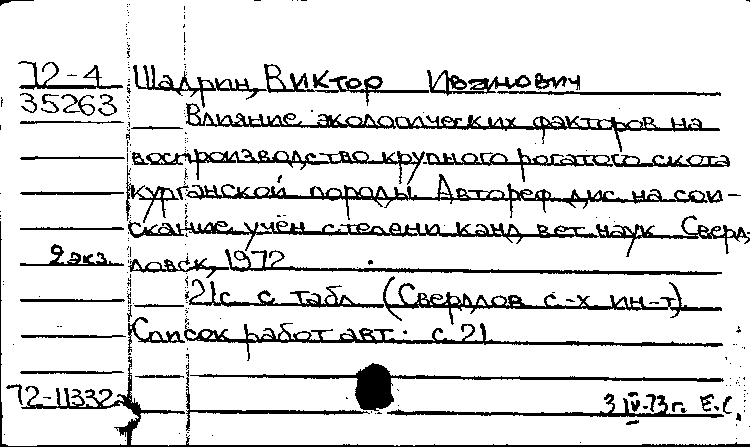 72-4 Шадрин, Виктор Иванович
35263 Влияние экологических факторов на
воспроизводство крупного рогатого скота
курганской породы. Автореф. дис. на сои-
скание учён степени канд. вет. наук Сверд-
2 экз. ловск, 1972
21с с табл (Свердлов с-х ин-т)
Список работ авт.: с 21
72-11332а 3 IV-73г. Е.С.